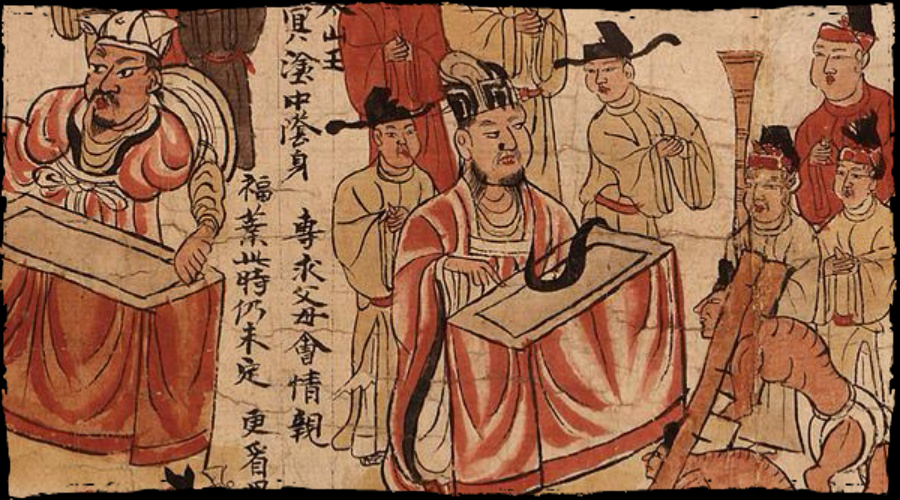 太山王
冥塗中陰身 專求父母會情親
福業此時仍未定 更看